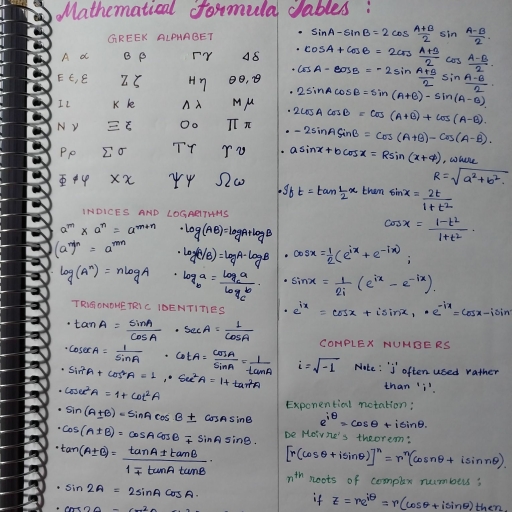 Mathematical Formula Tables :
GREEK ALPHABET
A α B β Γ γ Δ δ
E ϵ, ε Z ζ H η Θ θ, ϑ
I ι K k Λ λ M μ
N ν Ξ ξ O o Π π
P ρ Σ σ T τ ϒ υ
Φ ϕ φ X x Ψ ψ Ω ω
INDICES AND LOGARITHMS
a^m × a^n = a^{m+n} • log(AB) = logA + logB
(a^m)^n = a^{mn} • log(A/B) = logA - logB
log(A^n) = nlogA • log_b a = log_c a / log_c b
TRIGONOMETRIC IDENTITIES
• tanA = sinA/cosA • SecA = 1/cosA
• CosecA = 1/sinA • CotA = cosA/sinA = 1/tanA
• Sin²A + cos²A = 1 , • Sec²A = 1 + tan²A
• Cosec²A = 1 + cot²A
• Sin(A±B) = SinA cos B ± CosA sinB
• Cos(A±B) = cosA cosB ∓ SinA sinB.
• tan(A±B) = tanA ± tanB / 1 ∓ tanA tanB
• sin 2A = 2sinA cosA.
• SinA - SinB = 2 cos A+B/2 sin A-B/2
• CosA + CosB = 2cos A+B/2 cos A-B/2
• CosA - CosB = -2sin A+B/2 sin A-B/2
• 2sinA CosB = sin(A+B) - sin(A-B)
• 2cosA cosB = Cos (A+B) + cos(A-B).
• -2sinA SinB = Cos (A+B) - Cos(A-B).
• asinx + bcosx = Rsin (x+ϕ), where
R = √a² + b².
• If t = tan ½ x then sinx = 2t/1+t²
cosx = 1-t²/1+t².
• cosx = ½(e^{ix} + e^{-ix}) ;
• sinx = 1/2i (e^{ix} - e^{-ix}).
• e^{ix} = cosx + isinx, • e^{-ix} = cosx - isin
COMPLEX NUMBERS
i = √-1 Note: 'j' often used rather
than 'i'.
Exponential notation:
e^{iθ} = cosθ + isinθ.
De Moivre's theorem:
[r(cosθ + isinθ)]^n = r^n(cosnθ + isinnθ).
nth roots of complex numbers :
if z = re^{iθ} = r(cosθ + isinθ) then